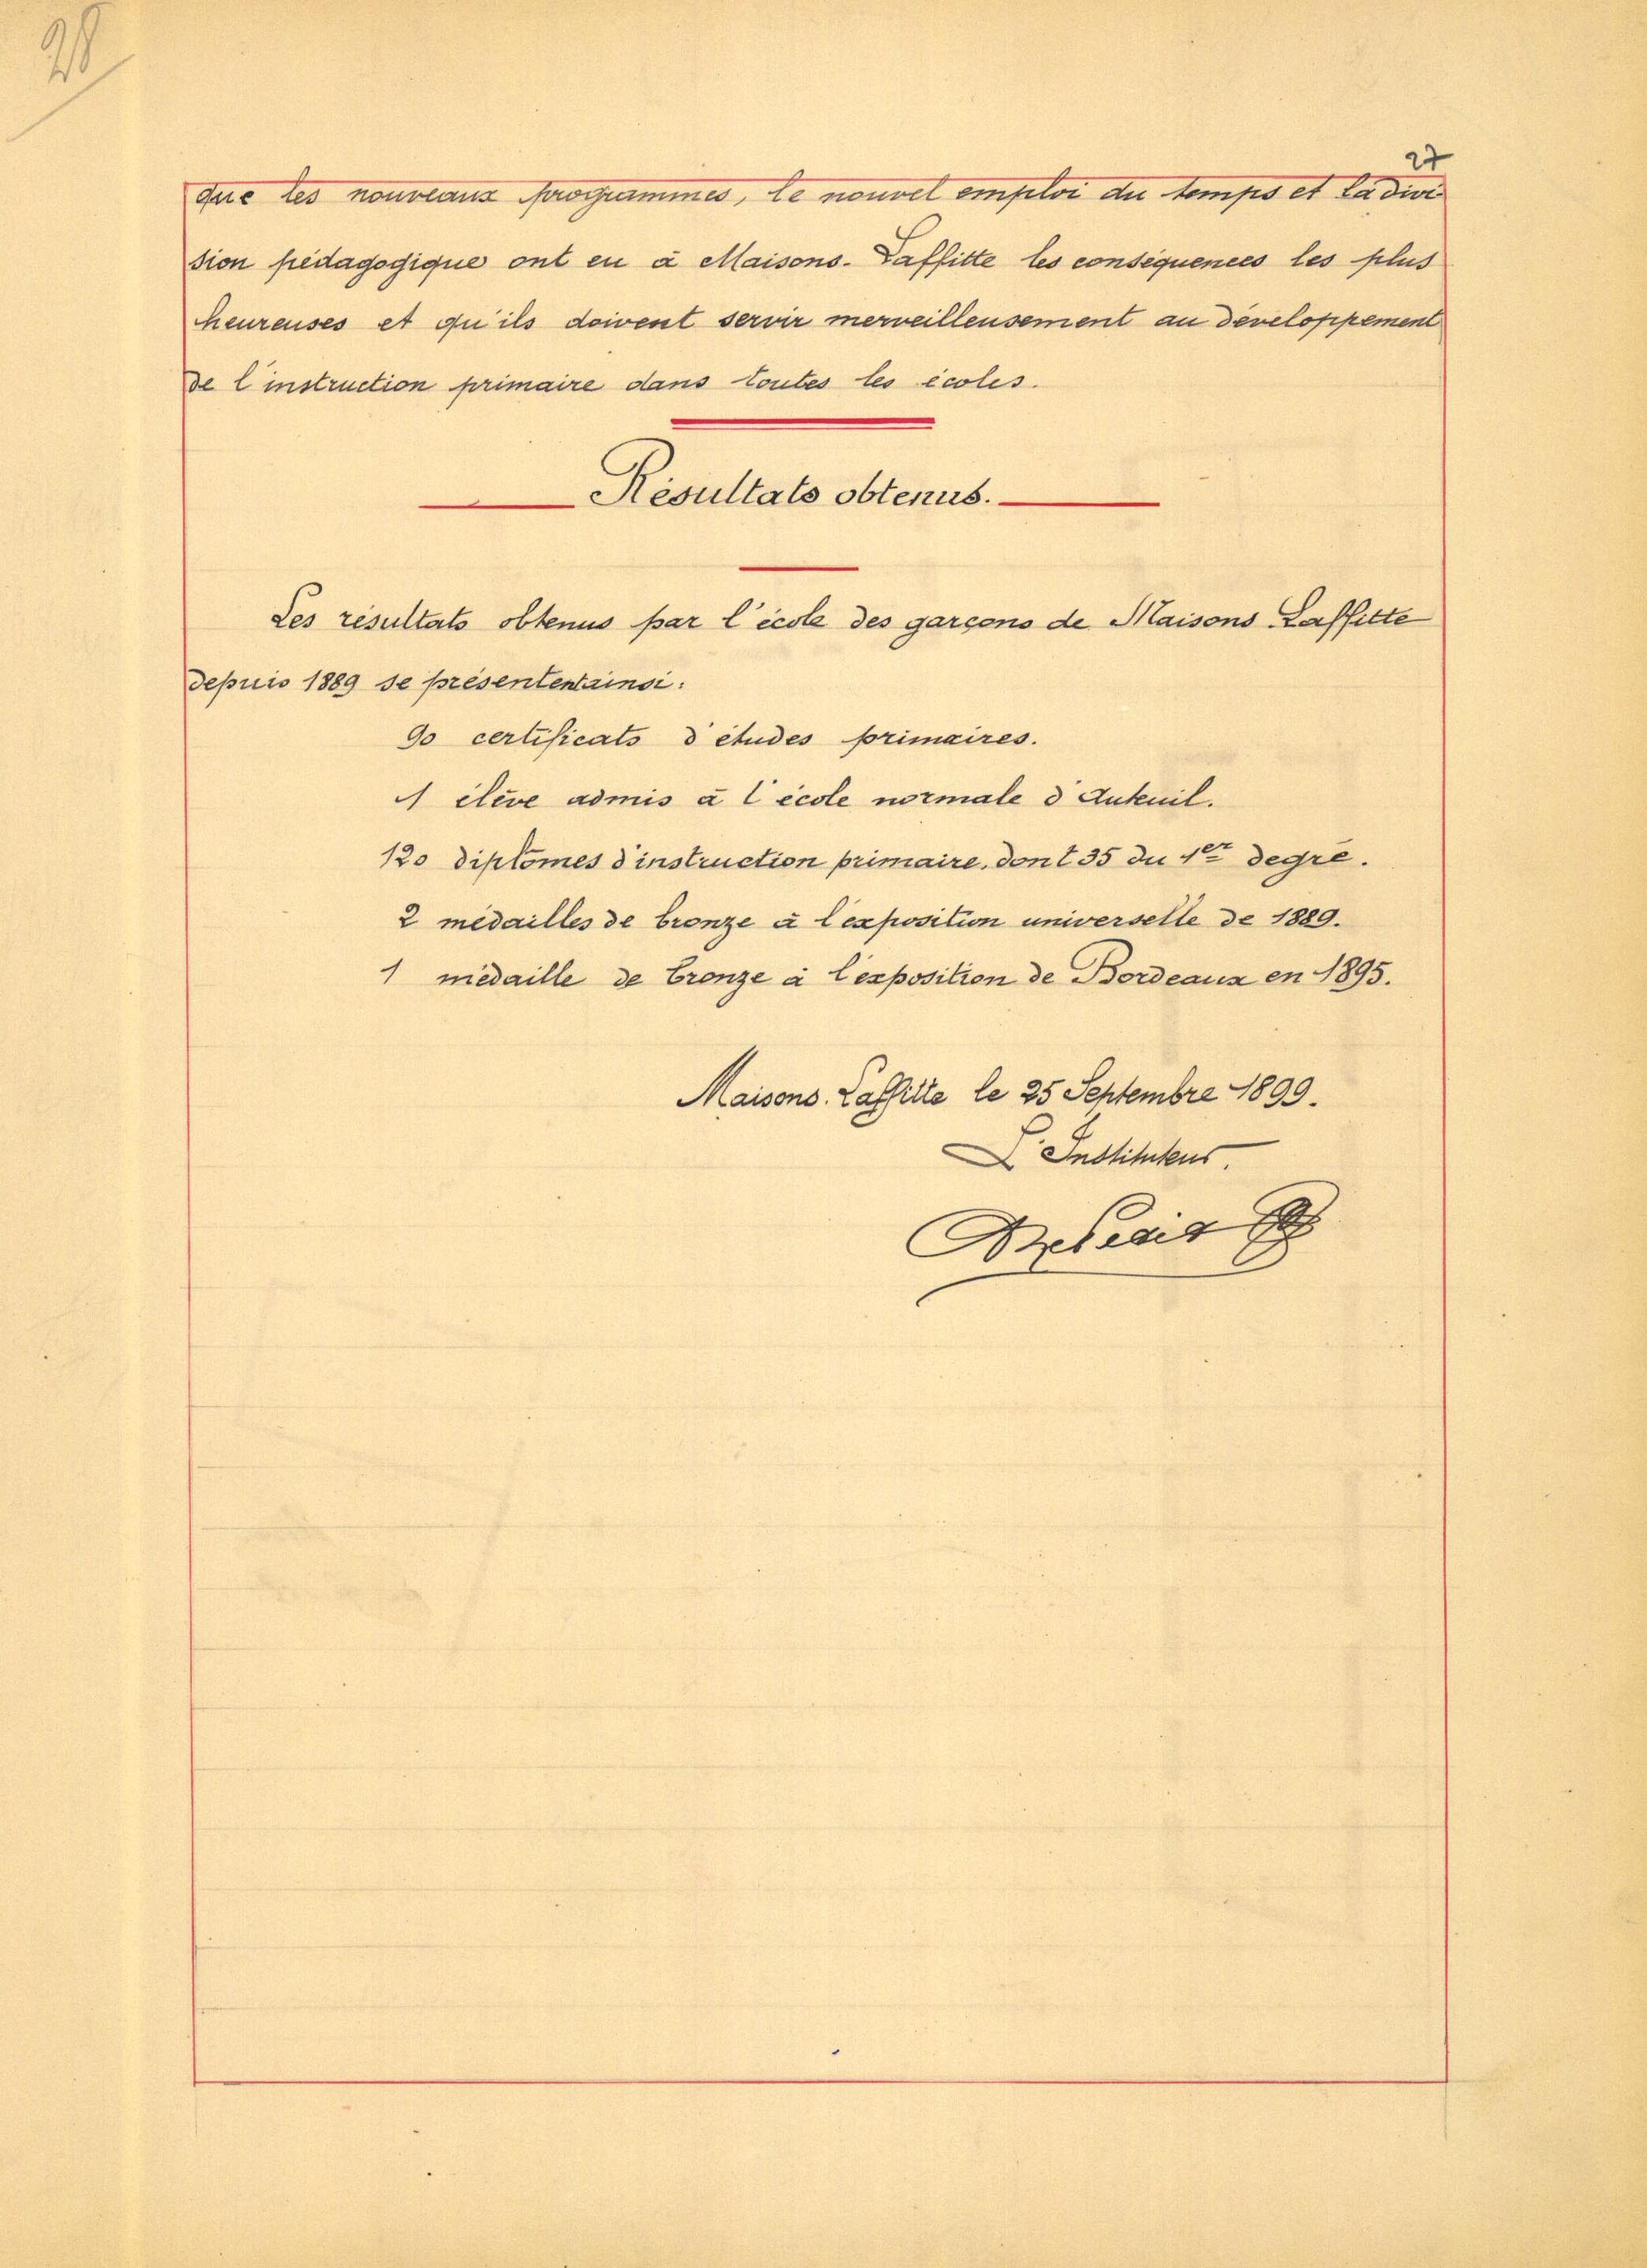 28
27
que les nouveaux programmes, le nouvel emploi du temps et la divi
sion pédagogique ont eu à Maisons-Laffitte les conséquences les plus
heureuses et qu'ils doivent servir merveilleusement au développement
de l'instruction primaire dans toutes les écoles.
Résultats obtenus.
Les résultats obtenus par l'école des garçons de Maisons Laffitte
depuis 1889 se présentent ainsi:
90 certificats d'études primaires.
1 élève admis à l'école normale d'Auteuil.
120 diplomes d'instruction primaire, dont 35 du 1er degré.
2 médailles de bronze à l'exposition universelle de 1889.
1 médaille de bronze à l'exposition de Bordeaux en 1895.
Maisons-Laffitte le 25 Septembre 1899.
L'Instituteur.